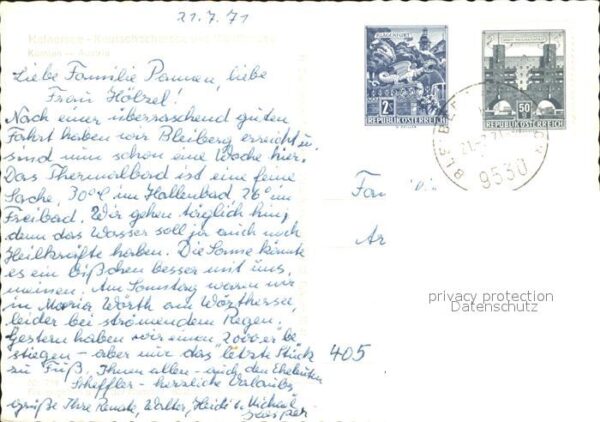 21.7.71
Liebe Familie Pannen, liebe
Frau Hölzel!
Nach einer überraschend guten
Fahrt haben wir Bleiberg erreicht u.
sind nun schon eine Woche hier.
Das Thermalbad ist eine feine
Sache, 30° im Hallenbad 26° im
Freibad. Wir gehen täglich hin,
denn das Wasser soll ja auch noch
Heilkräfte haben. Die Sonne könnte
es ein bißchen besser mit uns
meinen. Am Samstag waren wir
in Maria Wörth am Wörthersee,
leider bei strömendem Regen.
Gestern haben wir einen "2000er" be
stiegen - aber nur das "letzte Stück
zu Fuß. Ihnen allen - auch den Eheleuten
Scheffler - herzliche Urlaubs
grüße Ihre Renate, Walter, Heidi u. Michael
KLAGENFURT
2S
REPUBLIK ÖSTERREICH
50
REPUBLIK ÖSTERREICH
9530
Fam
405
privacy protection
Datenschutz